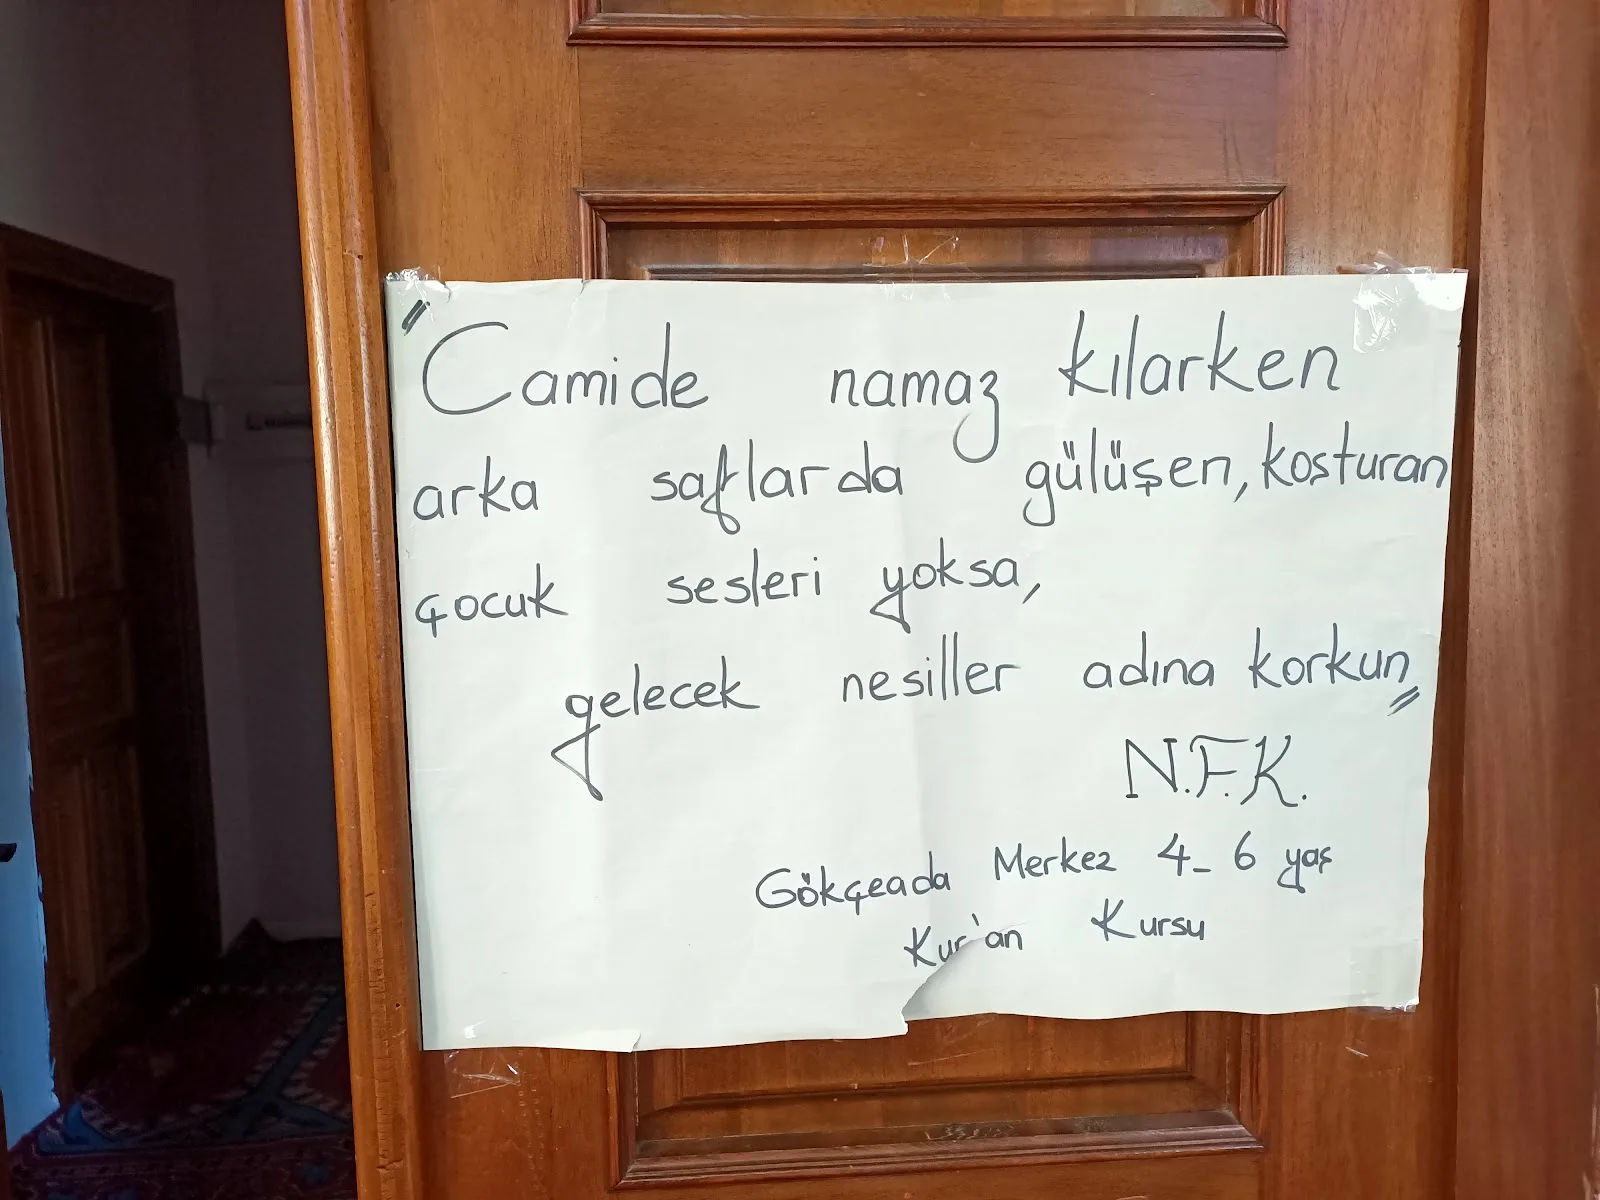 "Camide namaz kılarken
arka saflarda gülüşen, kosturan
çocuk sesleri yoksa,
gelecek nesiller adına korkun"
N.F.K.
Gökçeada Merkez 4-6 yaş
Kur'an Kursu